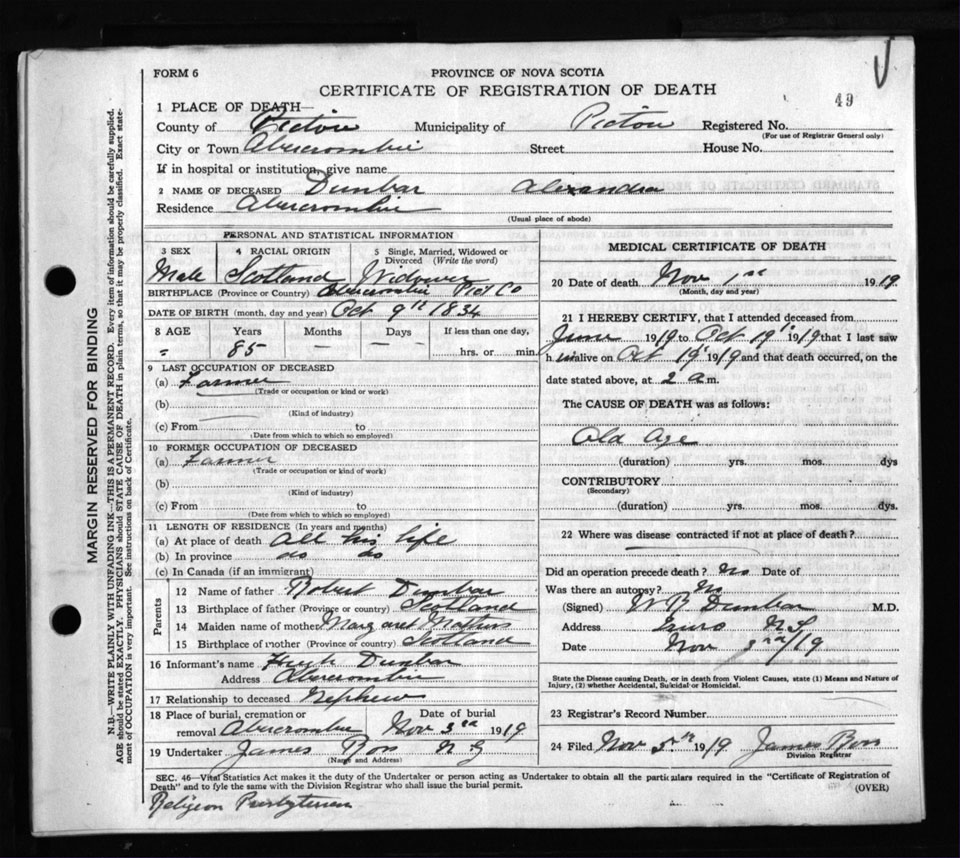 FORM 6
PROVINCE OF NOVA SCOTIA
CERTIFICATE OF REGISTRATION OF DEATH
49
1 PLACE OF DEATH—
County of Pictou Municipality of Pictou Registered No.
(For use of Registrar General only)
City or Town Abercrombie Street House No.
If in hospital or institution, give name
2 NAME OF DECEASED Dunbar Alexandra
Residence Abercrombie
(Usual place of abode)
PERSONAL AND STATISTICAL INFORMATION
3 SEX 4 RACIAL ORIGIN 5 Single, Married, Widowed or Divorced (Write the word)
Male Scotland Widower
BIRTHPLACE (Province or Country) Abercrombie Pict Co
DATE OF BIRTH (month, day and year) Oct 9th 1834
8 AGE Years Months Days If less than one day,
85 hrs. or min.
9 LAST OCCUPATION OF DECEASED
(a) Farmer
(Trade or occupation or kind or work)
(b)
(Kind of industry)
(c) From to
(Date from which to which so employed)
10 FORMER OCCUPATION OF DECEASED
(a) Farmer
(Trade or occupation or kind of work)
(b)
(Kind of industry)
(c) From to
(Date from which to which so employed)
11 LENGTH OF RESIDENCE (In years and months)
(a) At place of death all his life
(b) In province do do
(c) In Canada (if an immigrant)
Parents
12 Name of father Robert Dunbar
13 Birthplace of father (Province or country) Scotland
14 Maiden name of mother Margaret
15 Birthplace of mother (Province or country) Scotland
16 Informant's name Hugh Dunbar
Address Abercrombie
17 Relationship to deceased Nephew
18 Place of burial, cremation or removal Abercrombie Date of burial Nov 3rd 1919
19 Undertaker James Ross N G
(Name and Address)
MEDICAL CERTIFICATE OF DEATH
20 Date of death Nov 1st 1919
(Month, day and year)
21 I HEREBY CERTIFY, that I attended deceased from
June 1919 to Oct 19th 1919 that I last saw
him alive on Oct 19th 1919 and that death occurred, on the
date stated above, at 2 a m.
The CAUSE OF DEATH was as follows:
Old Age
(duration) yrs. mos. dys
CONTRIBUTORY
(Secondary)
(duration) yrs. mos. dys.
22 Where was disease contracted if not at place of death?
Did an operation precede death? No Date of
Was there an autopsy? No
(Signed) W R Dunbar M.D.
Address Truro N S
Date Nov 3rd/19
State the Disease causing Death, or in death from Violent Causes, state (1) Means and Nature of
Injury, (2) whether Accidental, Suicidal or Homicidal.
23 Registrar's Record Number
24 Filed Nov 5th 1919 James Ross
Division Registrar
SEC. 46—Vital Statistics Act makes it the duty of the Undertaker or person acting as Undertaker to obtain all the particulars required in the "Certificate of Registration of
Death" and to fyle the same with the Division Registrar who shall issue the burial permit.
(OVER)
Religeon Presbyterian
MARGIN RESERVED FOR BINDING
N.B.—WRITE PLAINLY WITH UNFADING INK—THIS IS A PERMANENT RECORD. Every item of information should be carefully supplied.
AGE should be stated EXACTLY. PHYSICIANS should STATE CAUSE OF DEATH in plain terms, so that it may be properly classified. Exact state-
ment of OCCUPATION is very important. See instructions on back of Certificate.